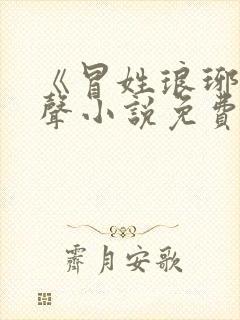 《冒姓琅琊
聲小說免費
霽月安歌